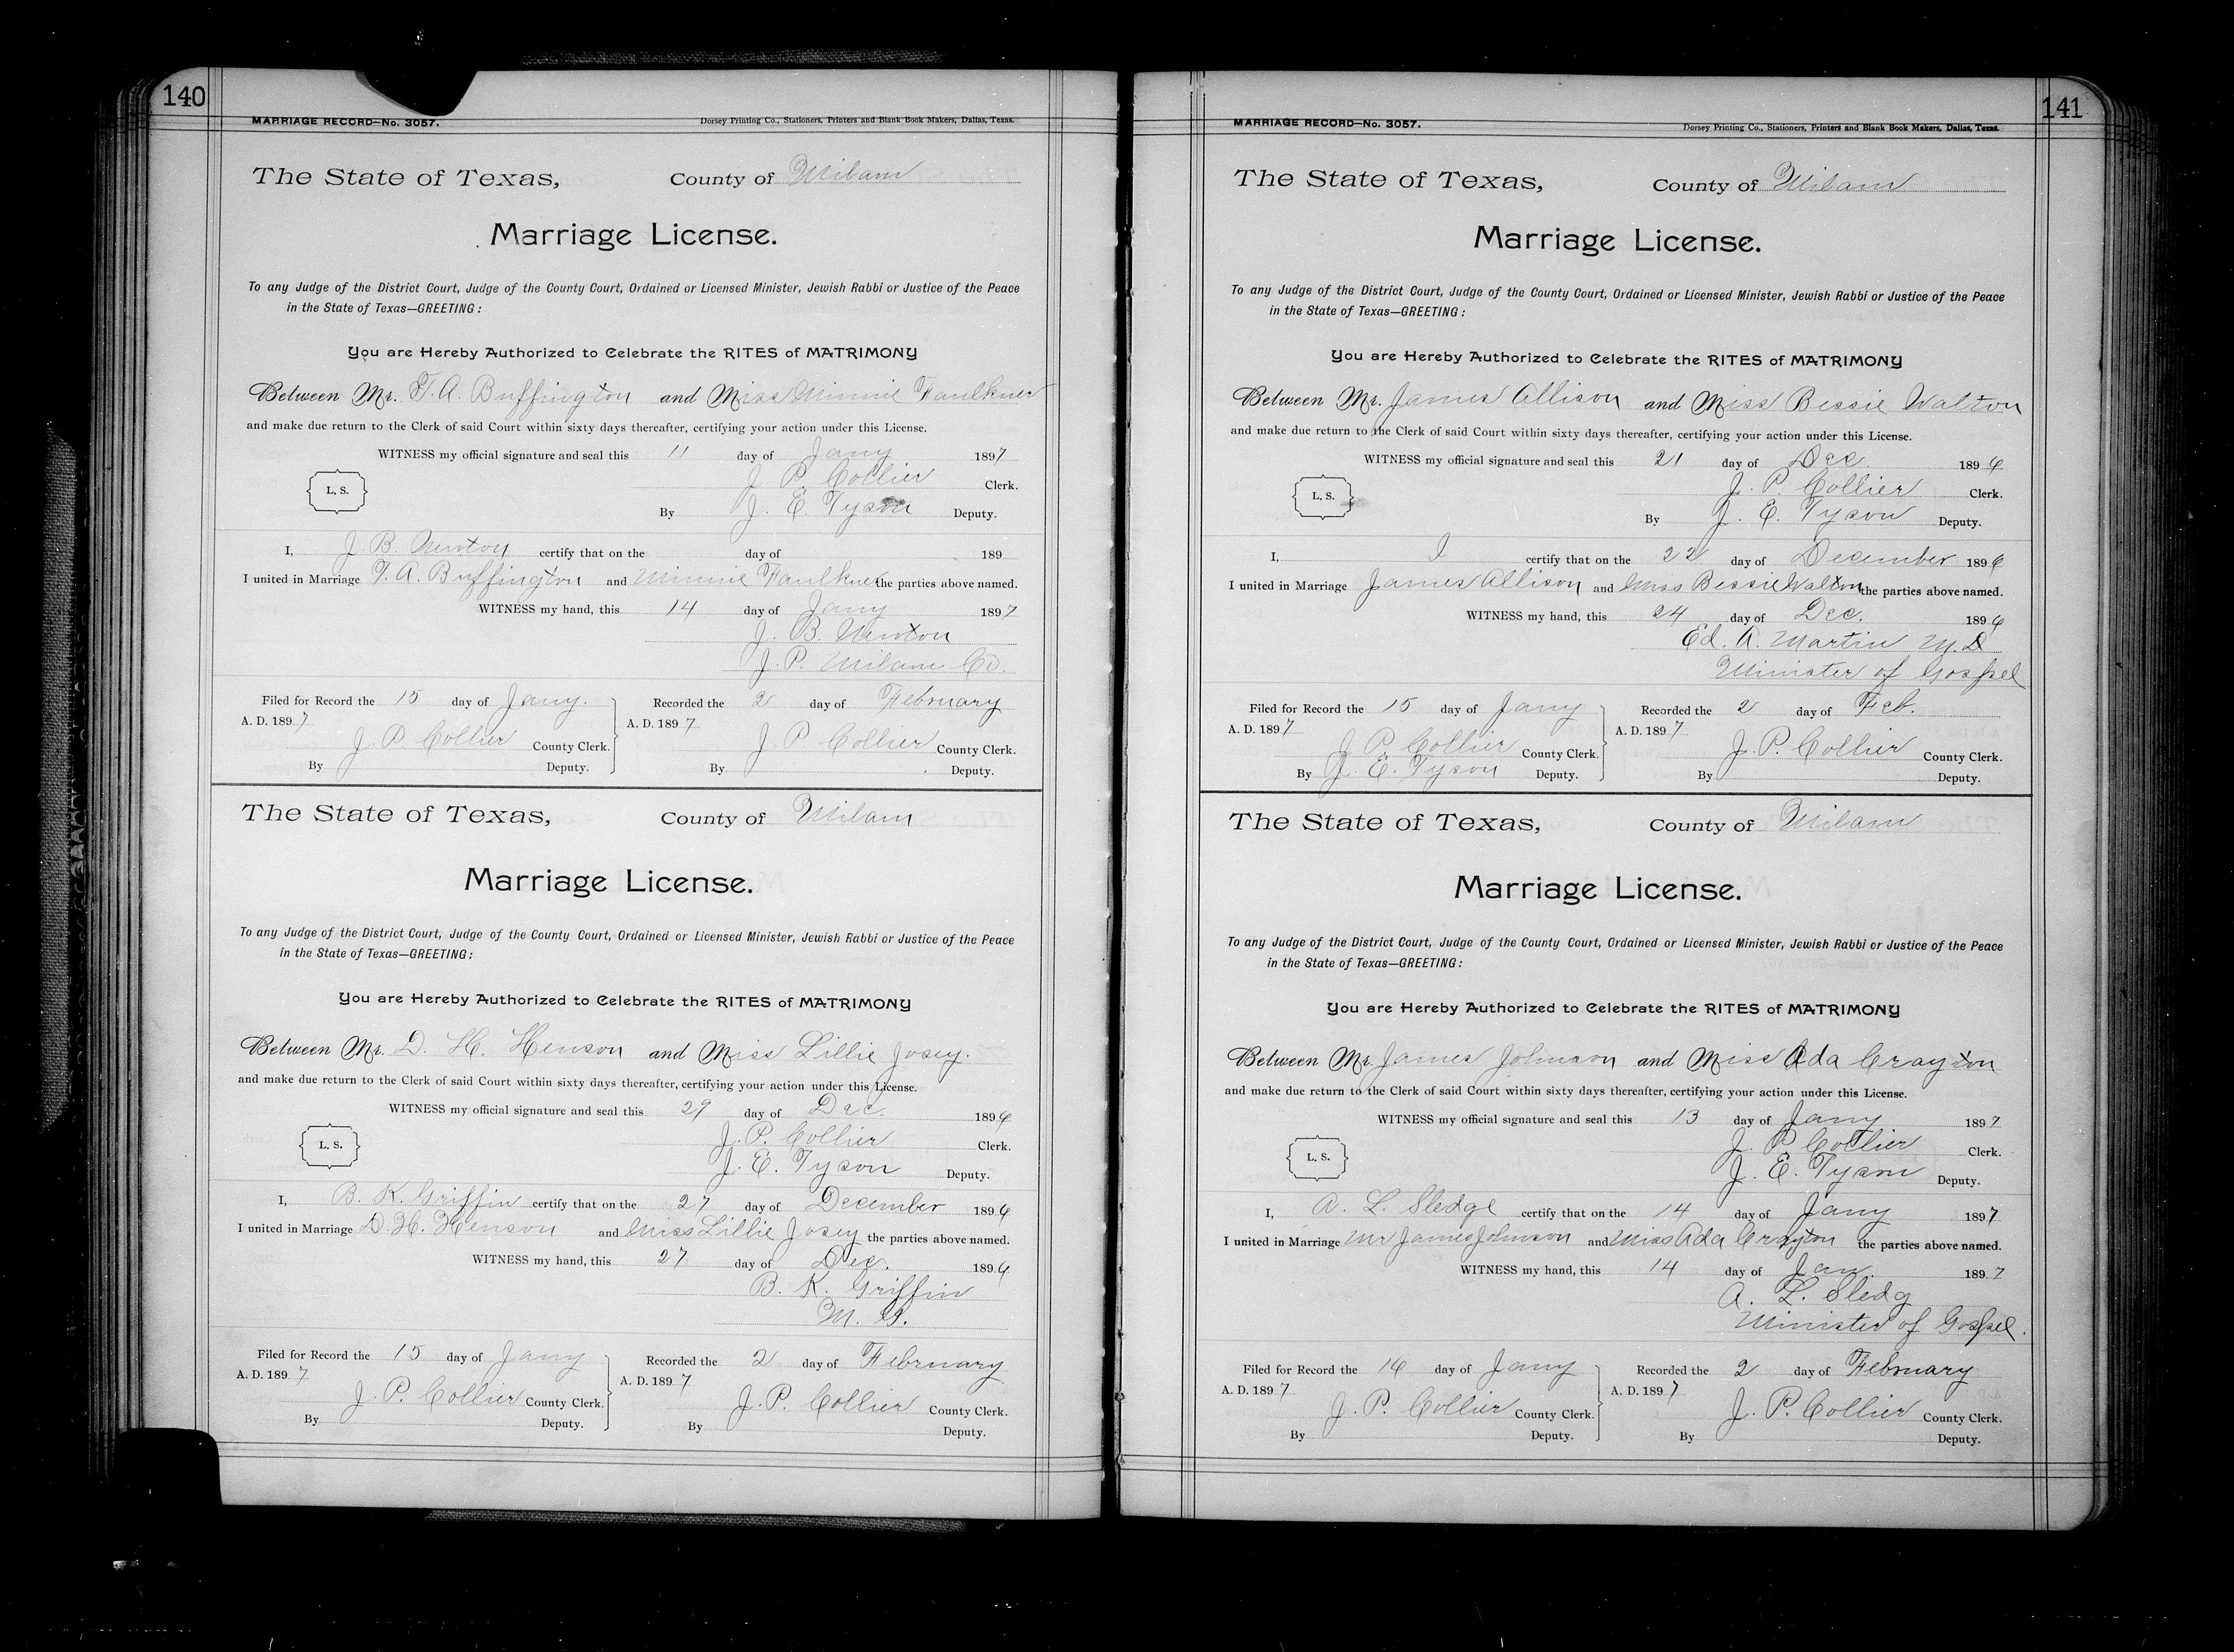 140
MARRIAGE RECORD—No. 3057.
Dorsey Printing Co., Stationers, Printers and Blank Book Makers, Dallas, Texas.
The State of Texas, County of Milam
Marriage License.
To any Judge of the District Court, Judge of the County Court, Ordained or Licensed Minister, Jewish Rabbi or Justice of the Peace
in the State of Texas—GREETING:
You are Hereby Authorized to Celebrate the RITES of MATRIMONY
Between Mr. T. A. Buffington and Miss Minnie Faulkner
and make due return to the Clerk of said Court within sixty days thereafter, certifying your action under this License.
WITNESS my official signature and seal this 11 day of Jany 1897
J P Collier Clerk.
L. S.
By J. E. Tyson Deputy.
I, J. B. Newton certify that on the day of 189
I united in Marriage T. A. Buffington and Minnie Faulkner the parties above named.
WITNESS my hand, this 14 day of Jany 1897
J. B. Newton
J. P. Milam Co.
Filed for Record the 15 day of Jany. Recorded the 2 day of February
A. D. 1897 A. D. 1897
J. P. Collier County Clerk. J P Collier County Clerk.
By Deputy. By Deputy.
The State of Texas, County of Milam
Marriage License.
To any Judge of the District Court, Judge of the County Court, Ordained or Licensed Minister, Jewish Rabbi or Justice of the Peace
in the State of Texas—GREETING:
You are Hereby Authorized to Celebrate the RITES of MATRIMONY
Between Mr. D. H. Henson and Miss Lillie Josey.
and make due return to the Clerk of said Court within sixty days thereafter, certifying your action under this License.
WITNESS my official signature and seal this 29 day of Dec. 1896
J. P. Collier Clerk.
L. S.
J. E. Tyson Deputy.
I, B. K. Griffin certify that on the 27 day of December 1896
I united in Marriage D. H. Henson and Miss Lillie Josey the parties above named.
WITNESS my hand, this 27 day of Dec. 1896
B. K. Griffin
M. G.
Filed for Record the 15 day of Jany Recorded the 2 day of February
A. D. 1897 A. D. 1897
J. P. Collier County Clerk. J. P. Collier County Clerk.
By Deputy. By Deputy.
141
MARRIAGE RECORD—No. 3057.
Dorsey Printing Co., Stationers, Printers and Blank Book Makers, Dallas, Texas.
The State of Texas, County of Milam
Marriage License.
To any Judge of the District Court, Judge of the County Court, Ordained or Licensed Minister, Jewish Rabbi or Justice of the Peace
in the State of Texas—GREETING:
You are Hereby Authorized to Celebrate the RITES of MATRIMONY
Between Mr. James Allison and Miss Bessie Walton
and make due return to the Clerk of said Court within sixty days thereafter, certifying your action under this License.
WITNESS my official signature and seal this 21 day of Dec. 1896
J. P. Collier Clerk.
L. S.
By J. E. Tyson Deputy.
I, I certify that on the 22 day of December 1896
I united in Marriage James Allison and Miss Bessie Walton the parties above named.
WITNESS my hand, this 24 day of Dec. 1896
Ed. A. Martin M. D
Minister of Gospel
Filed for Record the 15 day of Jany Recorded the 2 day of Feb.
A. D. 1897 A. D. 1897
J P Collier County Clerk. J. P. Collier County Clerk.
By J. E. Tyson Deputy. By Deputy.
The State of Texas, County of Milam
Marriage License.
To any Judge of the District Court, Judge of the County Court, Ordained or Licensed Minister, Jewish Rabbi or Justice of the Peace
in the State of Texas—GREETING:
You are Hereby Authorized to Celebrate the RITES of MATRIMONY
Between Mr. James Johnson and Miss Ada Crayton
and make due return to the Clerk of said Court within sixty days thereafter, certifying your action under this License.
WITNESS my official signature and seal this 13 day of Jany 1897
J. P Collier Clerk.
L. S.
J. E. Tyson Deputy.
I, A. L. Sledge certify that on the 14 day of Jany 1897
I united in Marriage Mr James Johnson and Miss Ada Crayton the parties above named.
WITNESS my hand, this 14 day of Jan. 1897
A. L. Sledg
Minister of Gospel.
Filed for Record the 16 day of Jany Recorded the 2 day of February
A. D. 1897 A. D. 1897
J. P. Collier County Clerk. J. P. Collier County Clerk.
By Deputy. By Deputy.